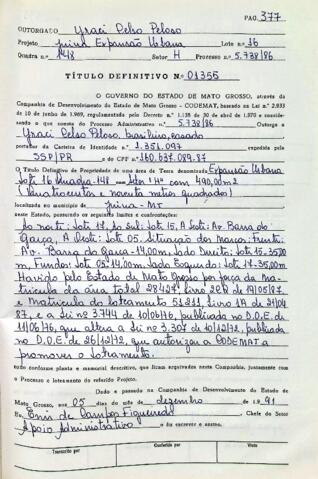 PAG. 377
OUTORGADO Yraci Celso Peloso
Projeto Juina Expansão Urbana Lote n.º 16
Quadra n.º 148 Setor H Processo n.º 5.738/86
TÍTULO DEFINITIVO N.º 01355
O GOVERNO DO ESTADO DE MATO GROSSO, através da
Companhia de Desenvolvimento do Estado de Mato Grosso - CODEMAT, baseado na Lei n.º 2.933
de 10 de junho de 1969, regulamentada pelo Decreto n.º 1.138 de 30 de abril de 1970 e considerando
o que consta do Processo Administrativo n.º 5.738/86 Outorga a
Yraci Celso Peloso, brasileiro, casado
portador da Carteira de Identidade n.º 1.351.097 expedida pela
SSP/PR e do CPF n.º 160.637.089.87
O Título Definitivo de Propriedade de uma área de Terra denominada Expansão Urbana
Lote 16 Quadra-148 com Setor "H" com 490,00m2
(quatrocentos e noventa metros quadrados)
localizada no município de Juina-MT
neste Estado, possuindo os seguintes limites e confrontações:
Ao norte: Lote 17, Ao Sul: Lote 15, A Leste: Av. Barra do
Garça, A Oeste: Lote 05. Situação dos Marcos: Frente:
Av. Barra do Garça-14,00m, Lado Direito: Lote 15-35,00
m, Fundos: Lote 05-14,00m, Lado Esquerdo: Lote 17-35,00m
Havido pelo Estado de Mato Grosso por força da Ma-
trícula da área total 28.427, livro 2CR de 19/05/87
e Matrícula do loteamento 51.211, livro 1A de 21/09/
87, e a Lei nº 3.744 de 10/06/76, publicada no D.O.E. de
11/06/76, que altera a Lei nº 3.307 de 10/12/72, publicada
no D.O.E. de 26/12/72, que autoriza a CODEMAT a
promover o Loteamento.
tudo conforme planta e memorial descritivo, que ficam arquivados nesta Companhia, juntamente com
o Processo e loteamento do referido Projeto.
Dado e passado na Companhia de Desenvolvimento do Estado de
Mato Grosso, aos 05 dias do mês de dezembro de 1991
Eu, Enis de Campos Figueiredo Chefe do Setor
Apoio Administrativo o fiz escrever e assino.
Transcrito por
Conferido por
Visto